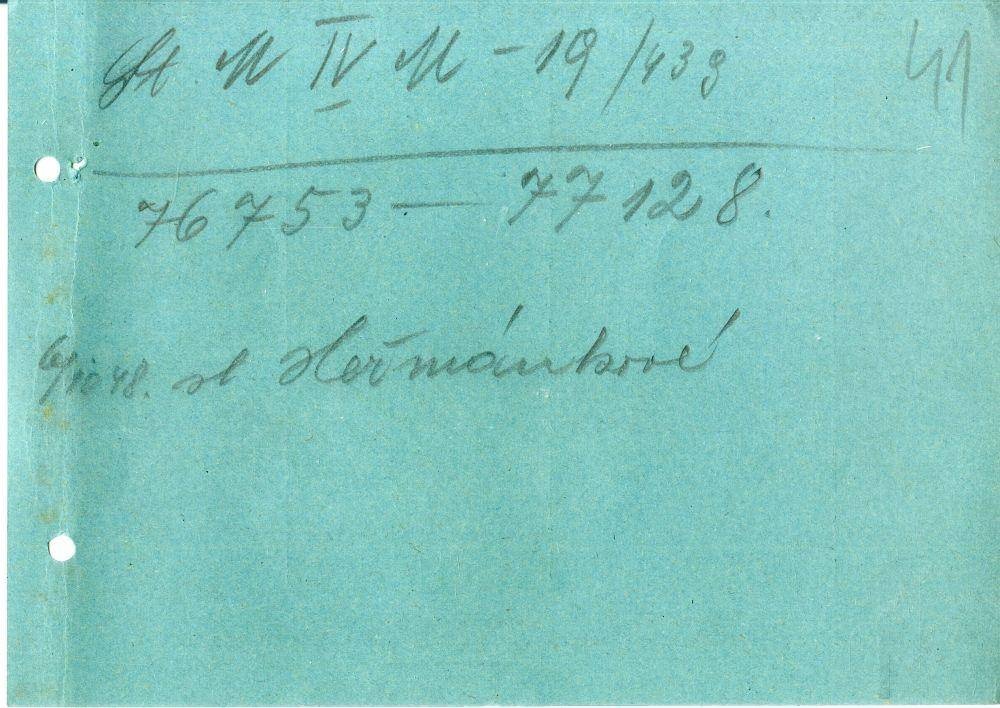 St. M IV M - 19/439
41
76753 — 77128.
6/10 48. sl Heřmánkové